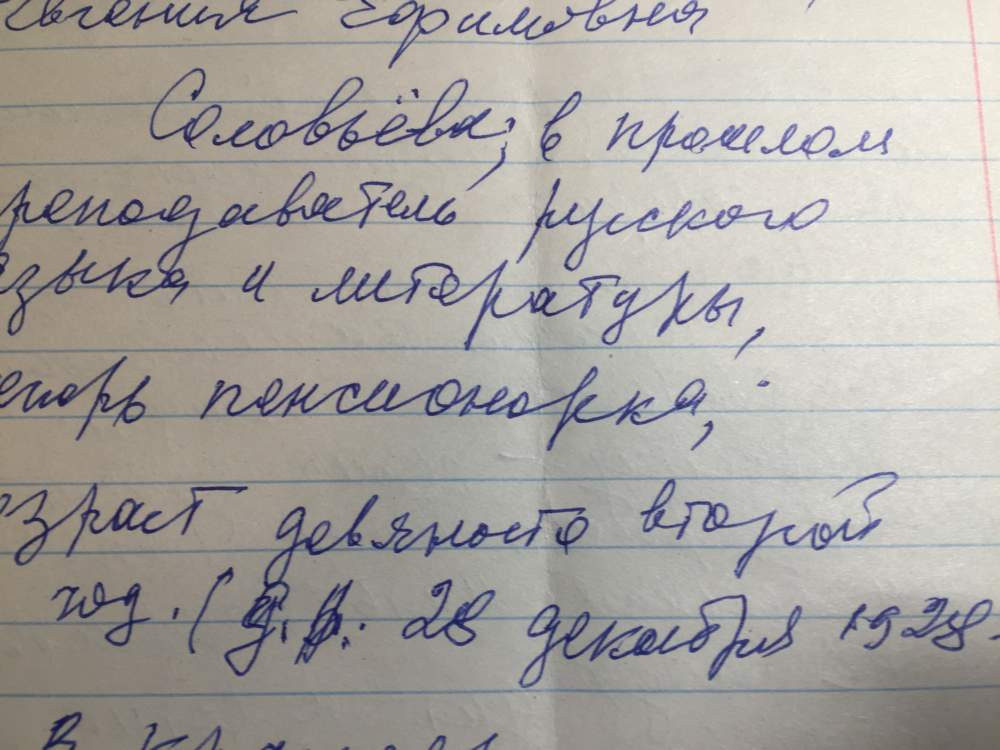 Евгения Ефимовна
Соловьёва, в прошлом
преподаватель русского
языка и литературы,
теперь пенсионерка,
возраст девяносто второй
год. (Д.р. 28 декабря 1928.
В